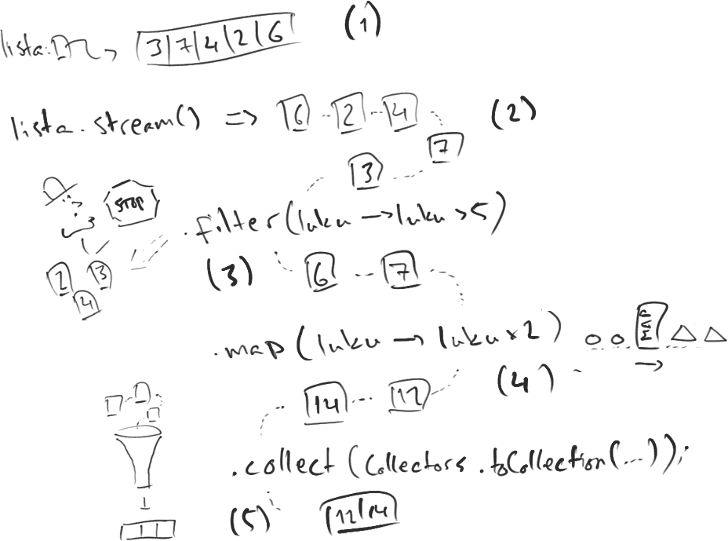 lista: 3 7 4 2 6 (1)
lista.stream() => 6 2 4 (2)
7
3
STOP
.filter(luku → luku > 5)
2 3 4
(3) 6 7
.map(luku → luku * 2) MAP
(4)
14 12
.collect(Collectors.toCollection(...));
(5) 12 14